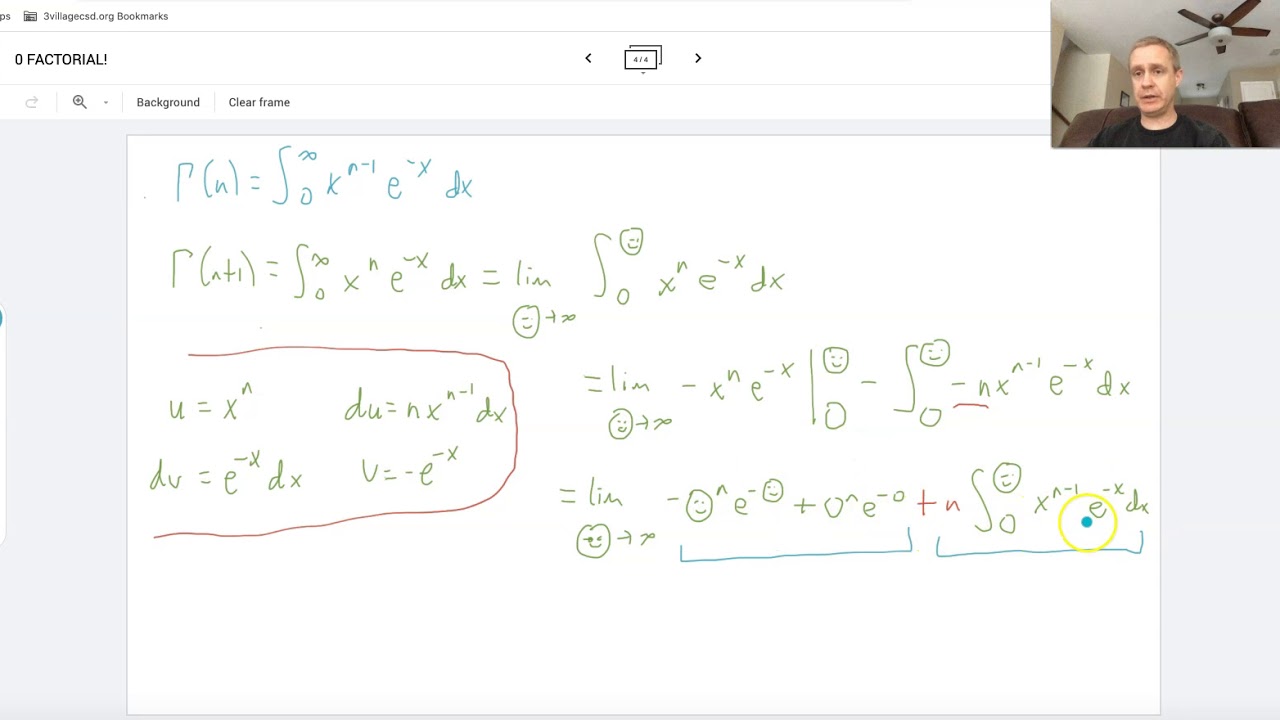 ps 3villagecsd.org Bookmarks
0 FACTORIAL!
4 / 4
Background Clear frame
Γ(n) = ∫₀^∞ x^(n-1) e^(-x) dx
Γ(n+1) = ∫₀^∞ x^n e^(-x) dx = lim ☺→∞ ∫₀^☺ x^n e^(-x) dx
= lim ☺→∞ -x^n e^(-x) |₀^☺ - ∫₀^☺ -n x^(n-1) e^(-x) dx
u = x^n du = n x^(n-1) dx
dv = e^(-x) dx v = -e^(-x)
= lim ☺→∞ -☺^n e^(-☺) + 0^n e^(-0) + n ∫₀^☺ x^(n-1) e^(-x) dx